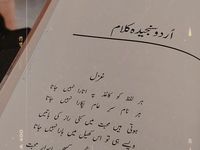 اُردو سنجیدہ کلام
غزل
ہر لفظ کو کاغذ پہ اتارا نہیں جاتا
ہر نام سرِ عام پکارا نہیں جاتا
ہوتی ہیں محبت میں کئی راز کی باتیں
ویسے ہی تو اس کھیل میں ہارا نہیں جاتا